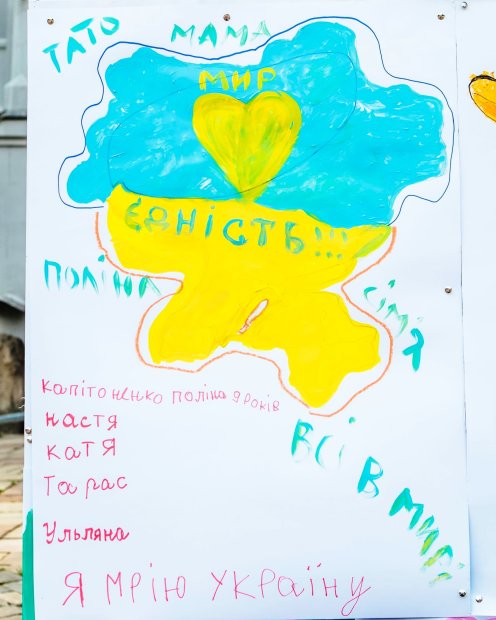 ТАТО
МАМА
МИР
ЄДНІСТЬ!!!
ПОЛІНА
СІМ'Я
Капітоненко Поліна 9 років
Настя
Катя
Тарас
Ульляна
ВСІ В МИРІ
Я МРІЮ УКРАЇНУ